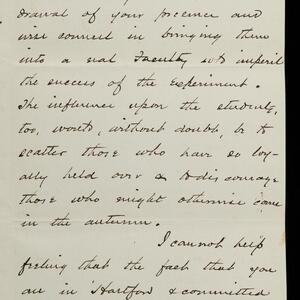 drawal of your presence and
wise counsel in bringing them
into a real Faculty wd imperil
the success of the experiment.
The influence upon the students,
too, would, without doubt, be to
scatter those who have so loy-
ally held over & to discourage
those who might otherwise come
in the autumn.
I cannot help
feeling that the fact that you
are in Hartford & committed